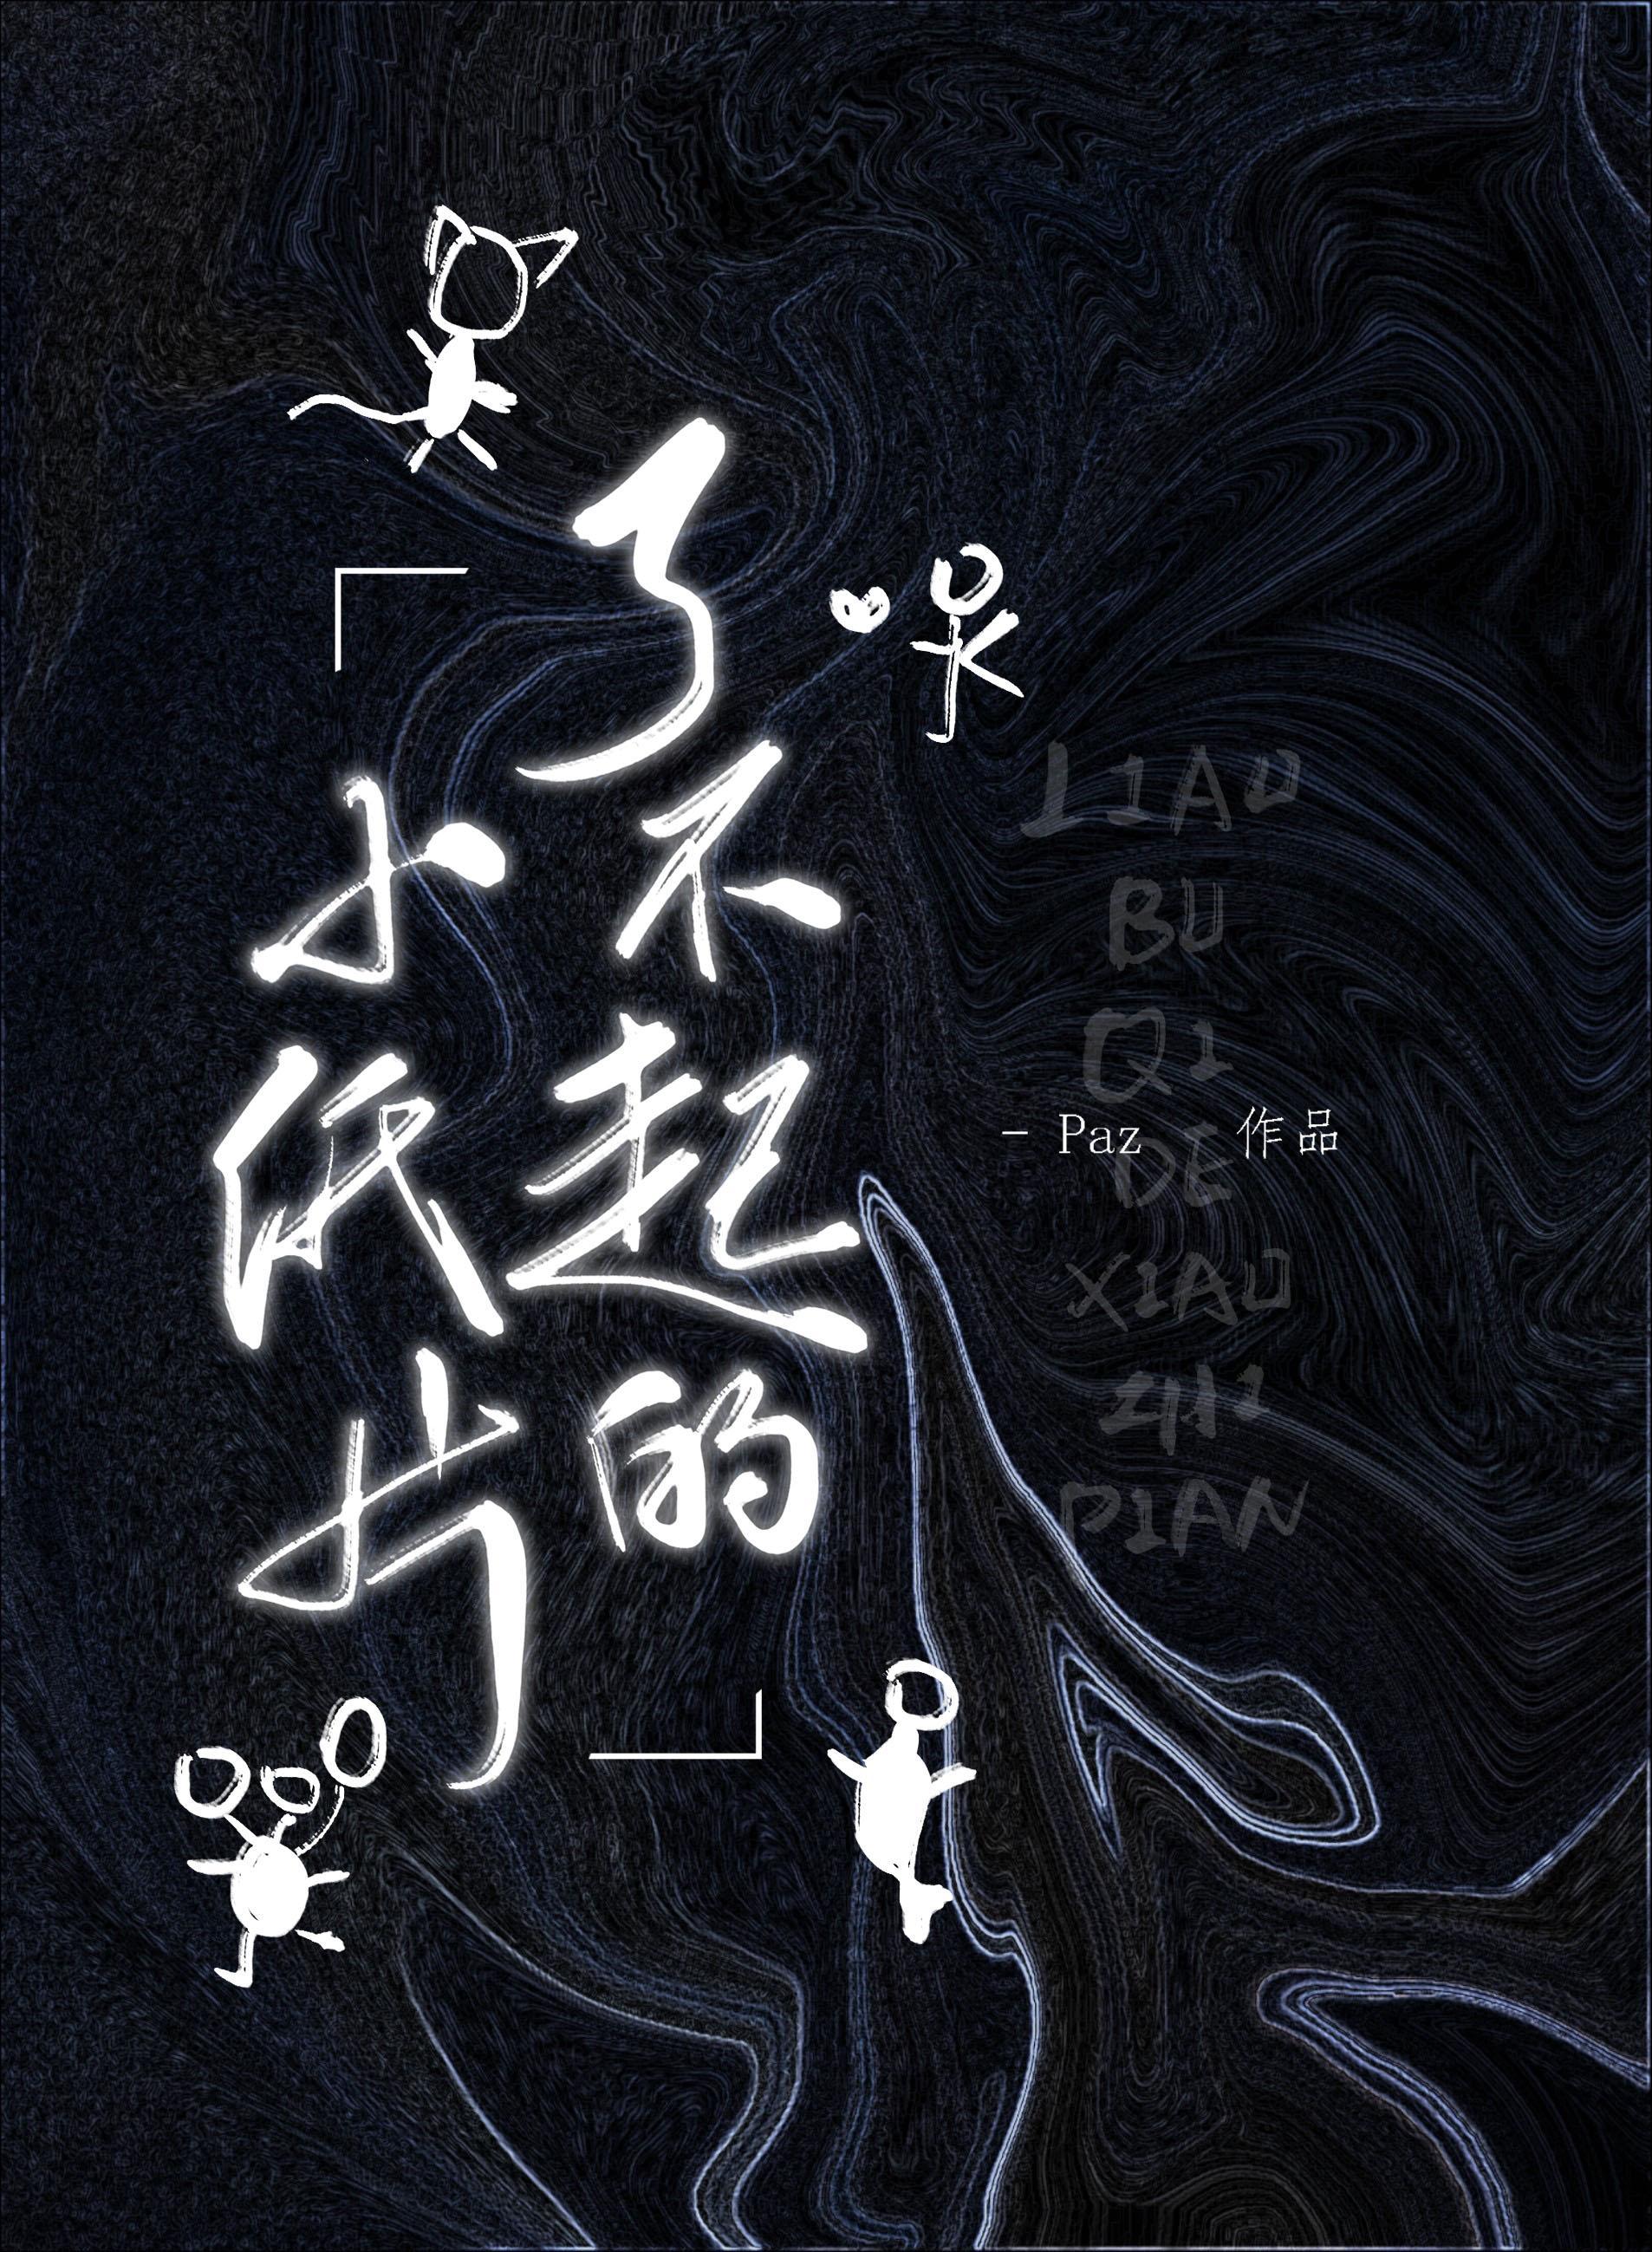 了不起的
小纸片
LIAO
BU
QI
DE
XIAO
ZHI
PIAN
- Paz 作品